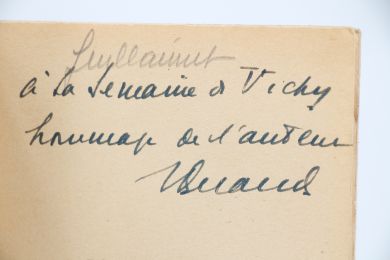 Guillaumet
à la Semaine de Vichy
hommage de l'auteur